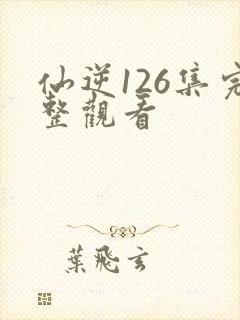 仙逆126集完
整觀看
葉飛玄